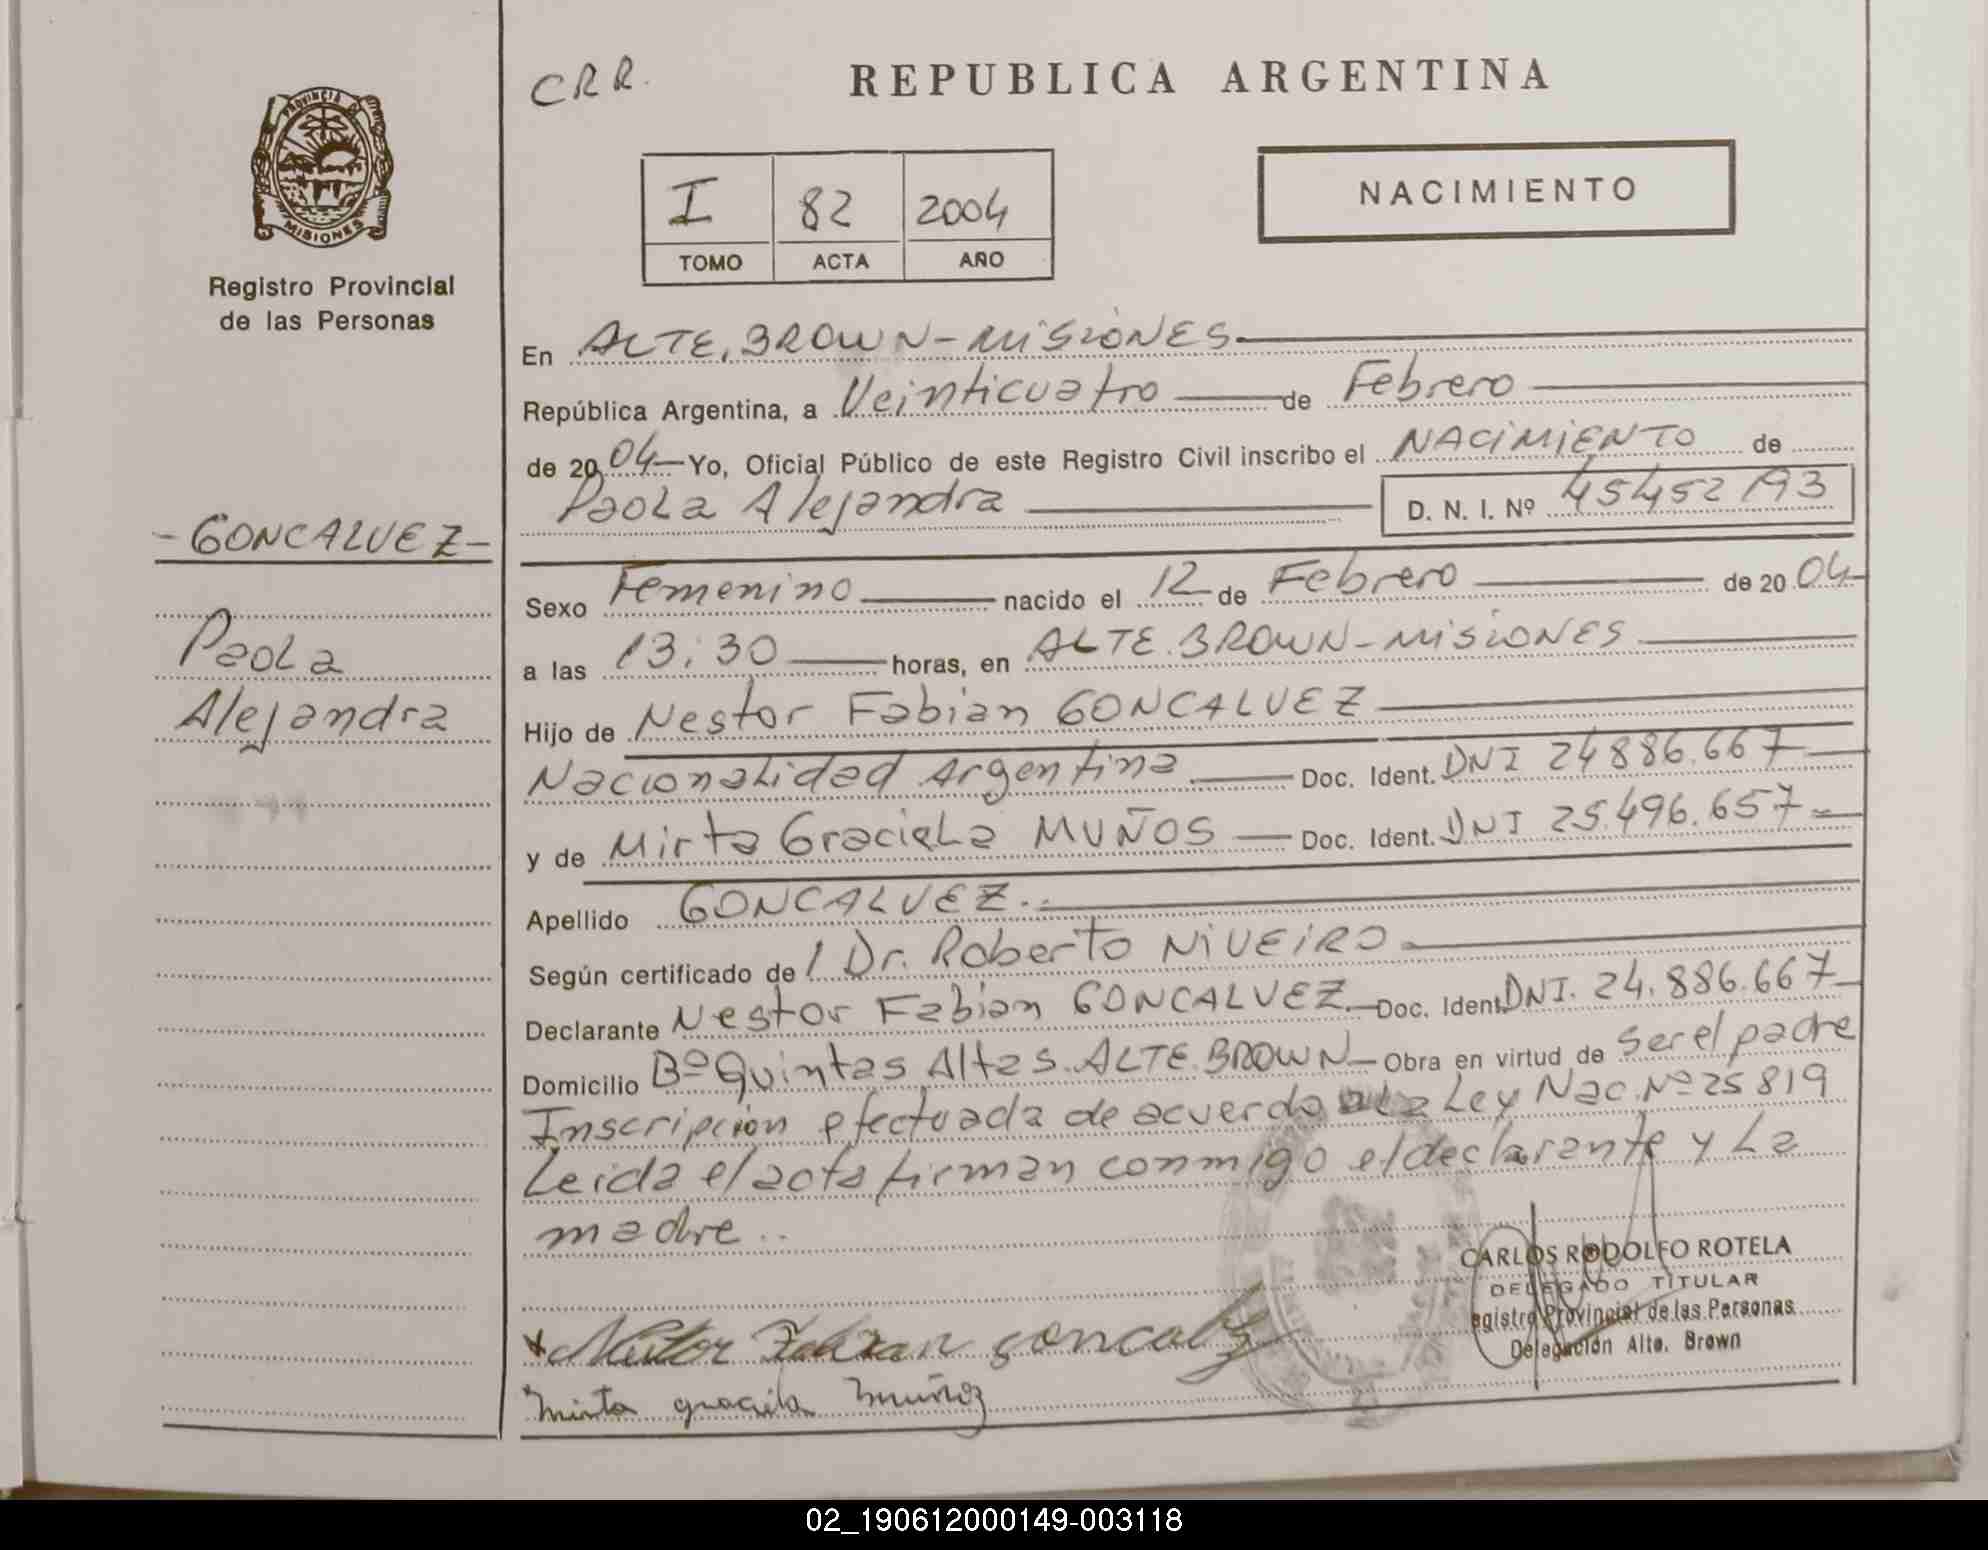 CRR.
REPUBLICA ARGENTINA
PROVINCIA DE
MISIONES
Registro Provincial
de las Personas
I 82 2004
TOMO ACTA AÑO
NACIMIENTO
En ALTE. BROWN - MISIONES
República Argentina, a Veinticuatro de Febrero
de 2004 Yo, Oficial Público de este Registro Civil inscribo el NACIMIENTO de
Paola Alejandra D. N. I. Nº 45452193
- GONCALVEZ -
Paola
Alejandra
Sexo Femenino nacido el 12 de Febrero de 2004
a las 13:30 horas, en ALTE. BROWN - MISIONES
Hijo de Nestor Fabian GONCALVEZ
Nacionalidad Argentina Doc. Ident. DNI 24886.667
y de Mirta Graciela MUÑOS Doc. Ident. DNI 25.496.657
Apellido GONCALVEZ..
Según certificado de / Dr. Roberto NIVEIRO
Declarante Nestor Fabian GONCALVEZ Doc. Ident. DNI. 24.886.667
Domicilio Bº Quintas Altas. ALTE. BROWN Obra en virtud de ser el padre
Inscripción efectuada de acuerdo a la Ley Nac. Nº 25819
Leida el acta firman conmigo el declarante y La
madre..
CARLOS RODOLFO ROTELA
DELEGADO TITULAR
egistro Provincial de las Personas
Delegación Alte. Brown
Nestor Fabian goncalvez
Mirta graciela muñoz
02_190612000149-003118